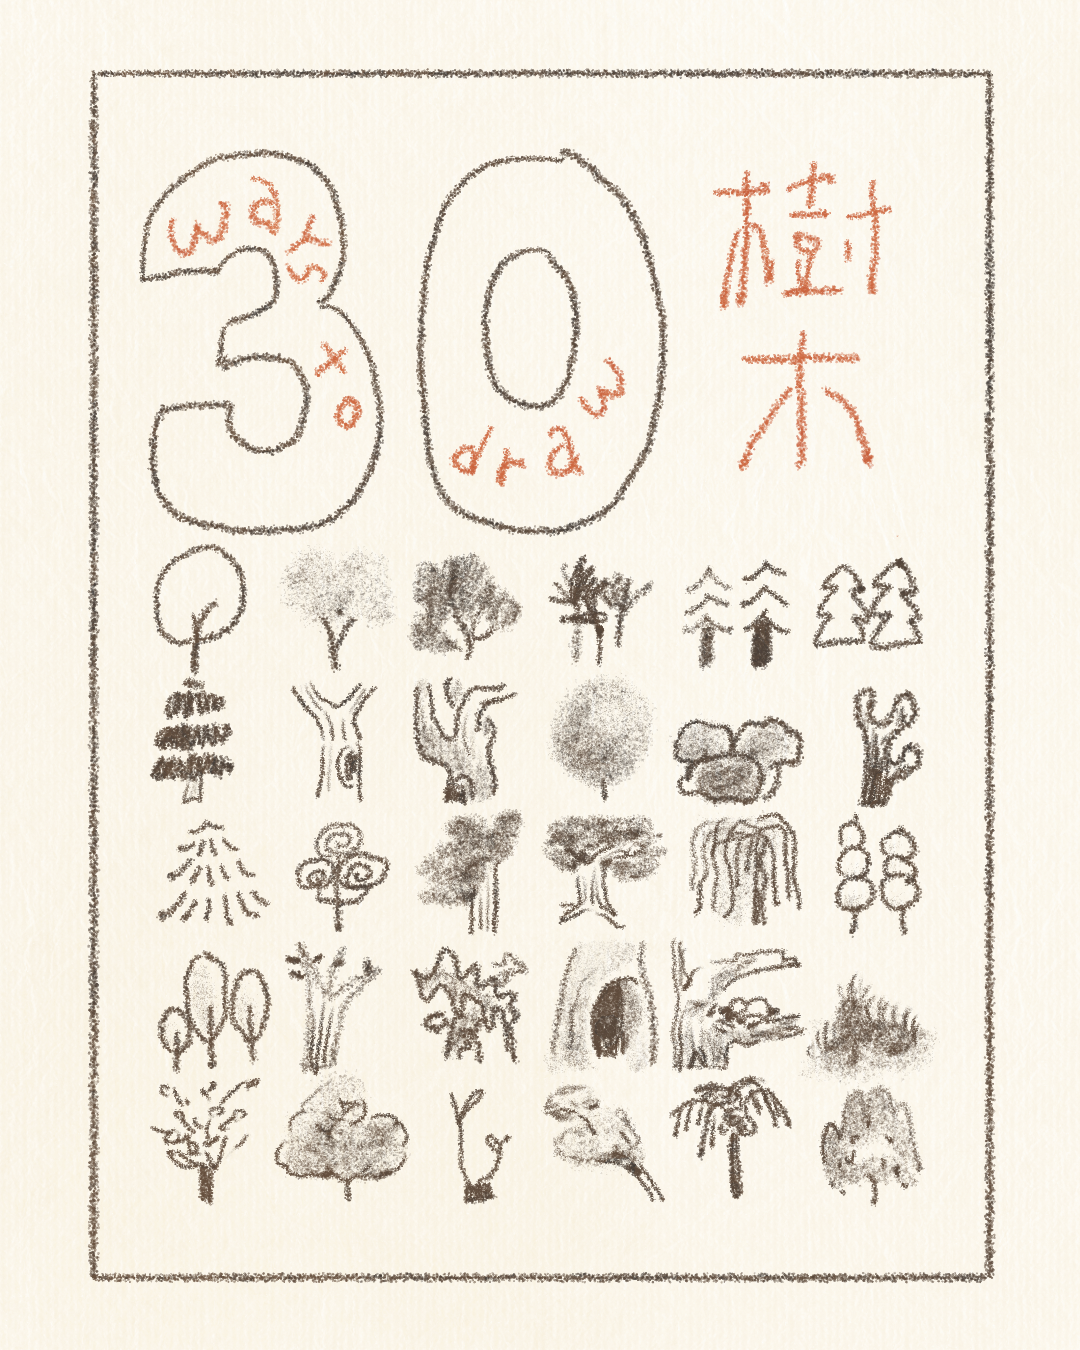 30
ways
to
draw
樹
木